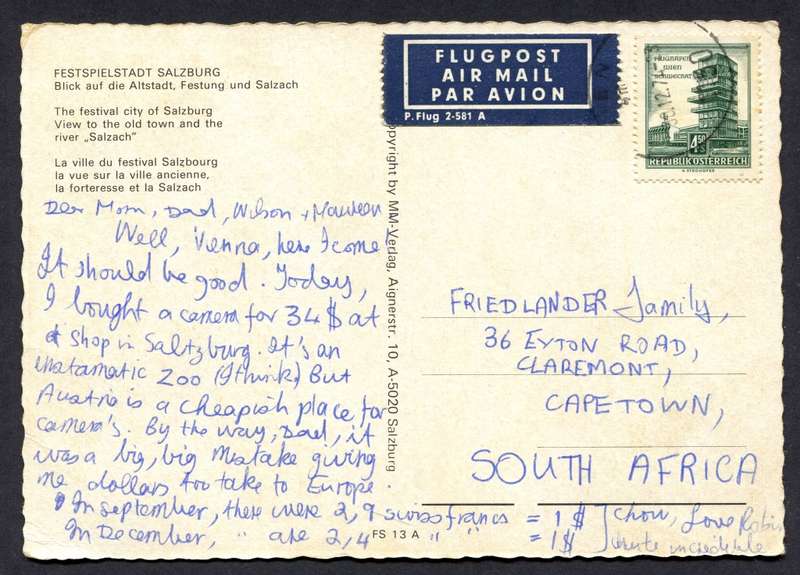 FESTSPIELSTADT SALZBURG
Blick auf die Altstadt, Festung und Salzach
The festival city of Salzburg
View to the old town and the
river „Salzach"
La ville du festival Salzbourg
la vue sur la ville ancienne,
la forteresse et la Salzach
Dear Mom, Dad, Wilson + Maureen
Well, Vienna, here I come
It should be good. Today,
I bought a camera for 34 $ at
a shop in Saltzburg. It's an
instamatic 200 (I think) But
Austria is a cheapish place for
camera's. By the way, Dad, it
was a big, big mistake giving
me dollars too take to Europe.
In september, there were 2,9 swiss francs = 1 $
In December, " are 2,4 " " = 1 $
Love Robin
incredible
FLUGPOST
AIR MAIL
PAR AVION
P. Flug 2-581 A
FLUGHAFEN
WIEN
SCHWECHAT
4.50
S
REPUBLIK ÖSTERREICH
opyright by MM-Verlag, Aignerstr. 10, A-5020 Salzburg
FS 13 A
FRIEDLANDER Family,
36 EYTON ROAD,
CLAREMONT,
CAPETOWN,
SOUTH AFRICA